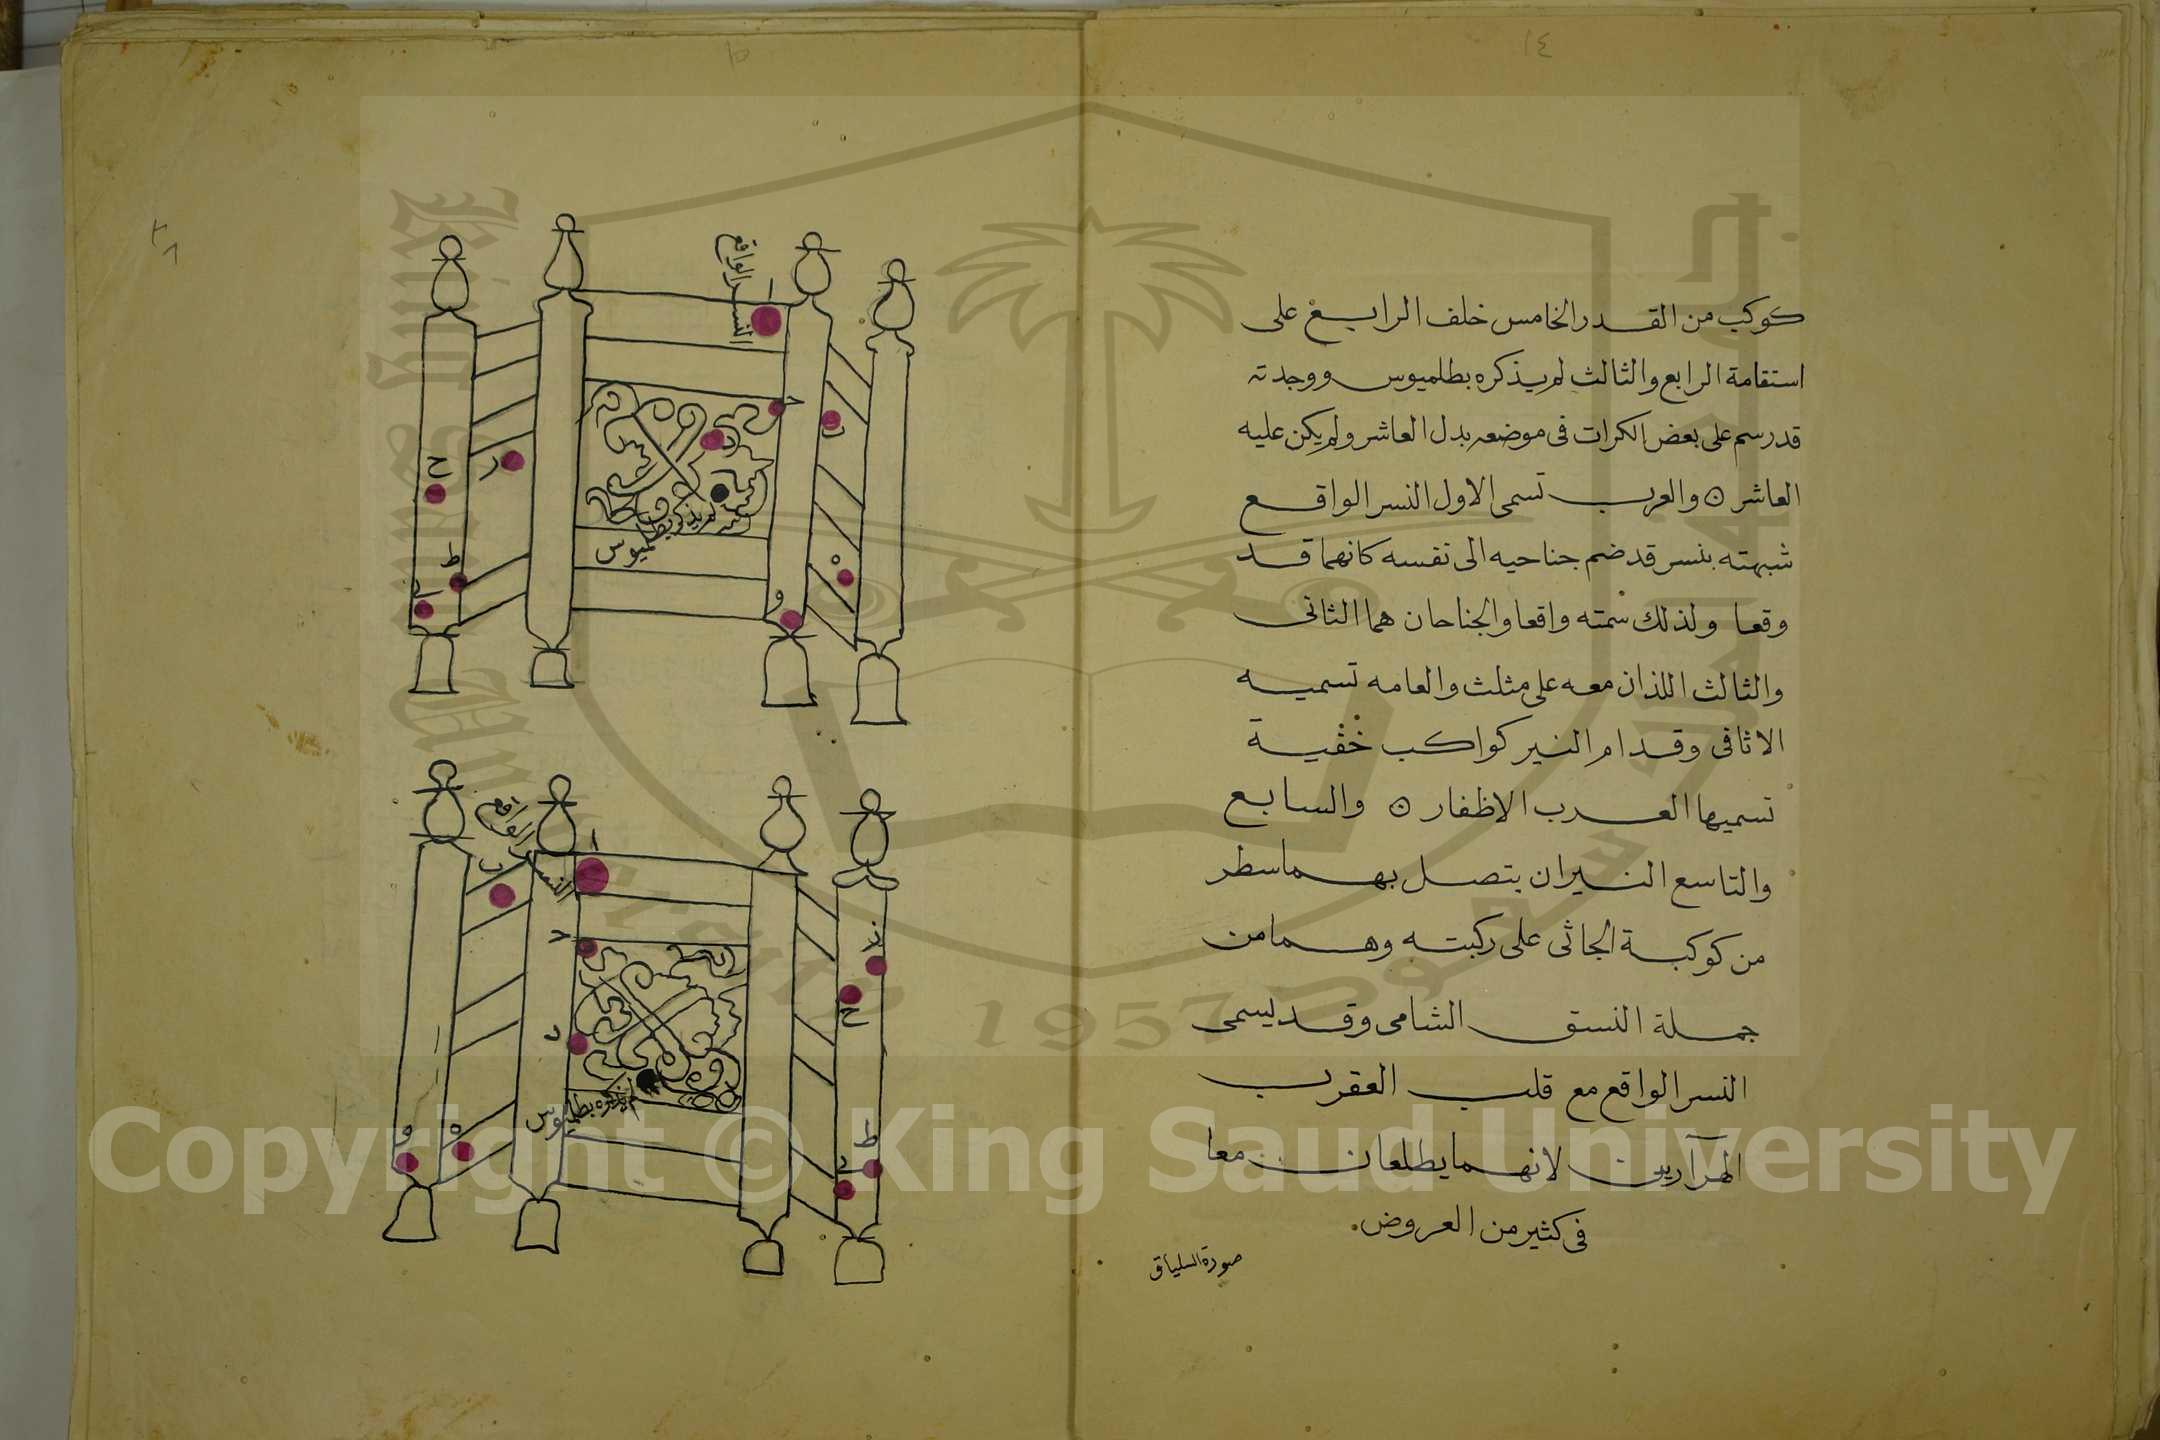 ١٤
كوكب من القدر الخامس خلف الرابع على
استقامة الرابع والثالث لم يذكره بطلميوس ووجدته
قد رسم على بعض الكرات فى موضعه بدل العاشر ولم يكن عليه
العاشر ه والعرب تسمى الاول النسر الواقع
شبهته بنسر قد ضم جناحيه الى نفسه كانهما قد
وقعا ولذلك سمته واقعا والجناحان هما الثانى
والثالث اللذان معه على مثلث والعامه تسميه
الاثافى وقدام النير كواكب خفية
تسميها العرب الاظفار ه والسابع
والتاسع النيران يتصل بهما سطر
من كوكبة الجاثى على ركبته وهما من
جملة النسق الشامى وقد يسمى
النسر الواقع مع قلب العقرب
الهرارين لانهما يطلعان معا
فى كثير من العروض
صورة السلياق
١٥
النسر الواقع
ا
ح
ر
ط
و
ه
لم يذكره بطلميوس
النسر الواقع
ا
ب
و
ه
ح
ط
لم يذكره بطلميوس
King Saud University
1957
Copyright © King Saud University